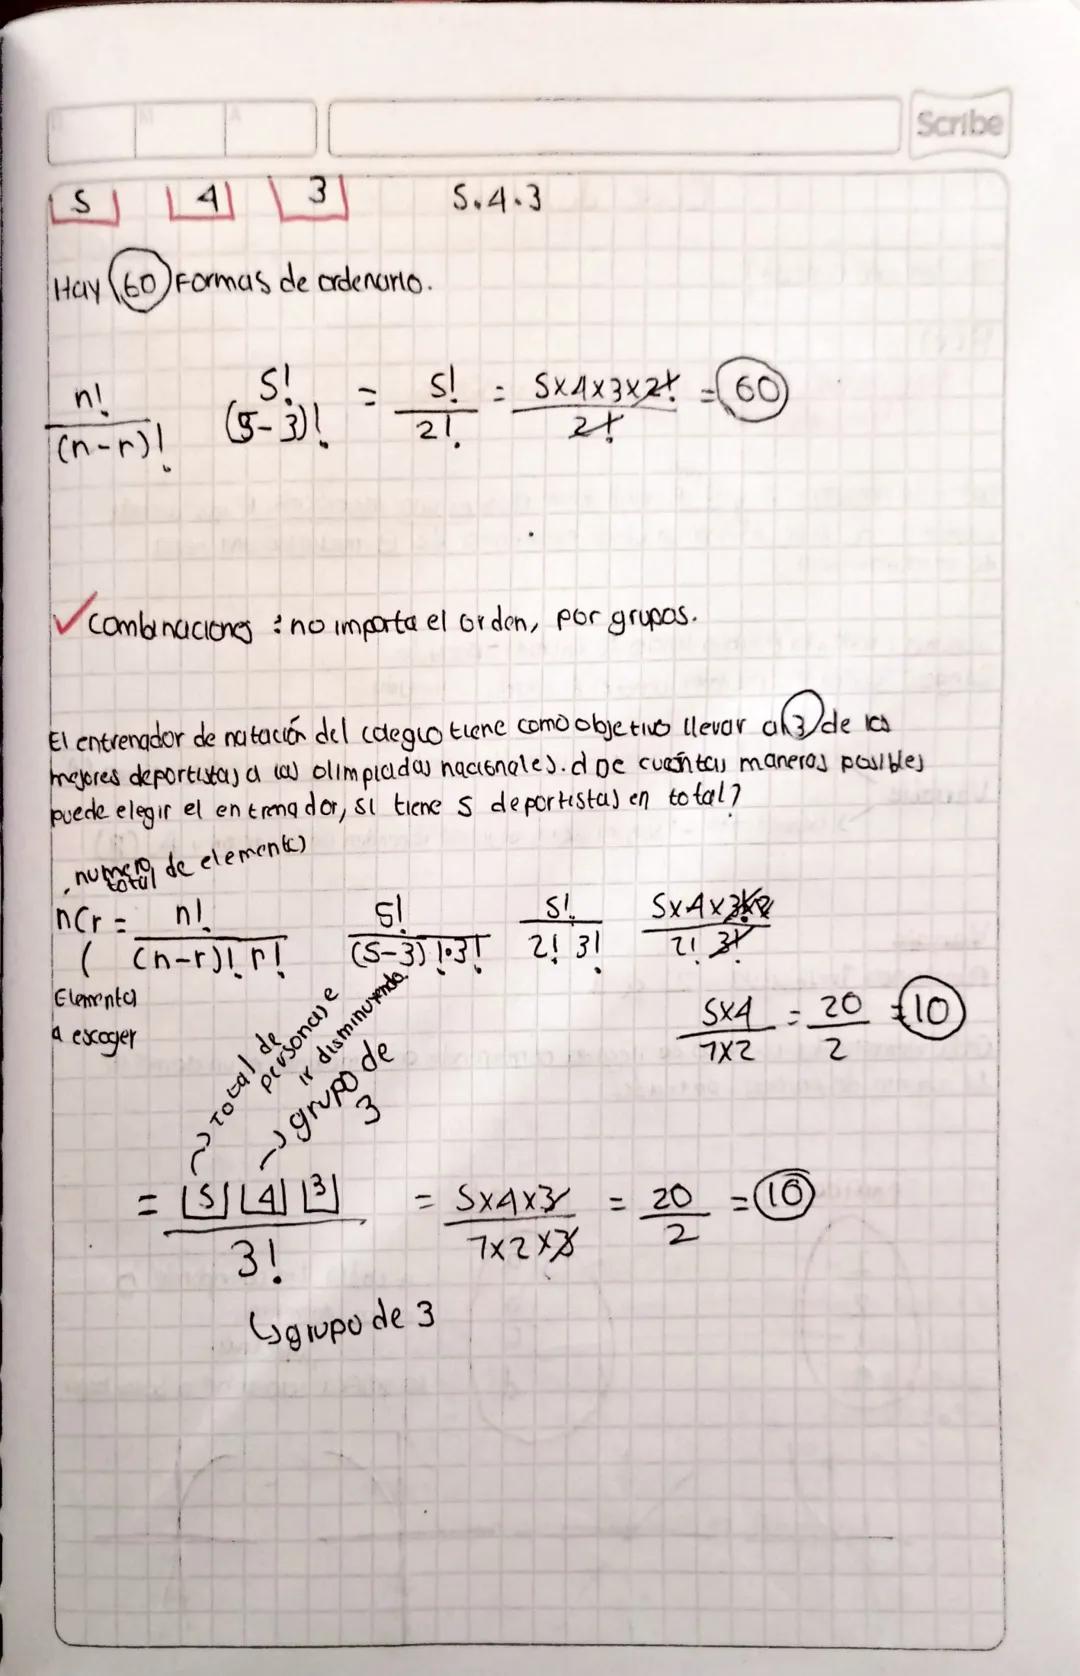 D M A
Scribe
5 4 3 5.4.3
Hay 60 Formas de ordenarlo.
n! / (n-r)! 5! / (5-3)! = 5! / 2! = 5x4x3x2! / 2! = 60
✓ combinaciones : no importa el orden, por grupos.
El entrenador de natación del colegio tiene como objetivo llevar a 3 de los
mejores deportistas a las olimpiadas nacionales. d De cuántas maneras posibles
puede elegir el entrenador, si tiene 5 deportistas en total?
numero total de elementos
nCr = n! / (n-r)! r! 5! / (5-3)!·3! 5! / 2! 3! 5x4x3! / 2! 3!
Elementos
a escoger
5x4 / 1x2 = 20 / 2 = 10
Total de
personas e
ir disminuyendo
grupo de
3
= 5 4 3 / 3! = 5x4x3 / 1x2x3 = 20 / 2 = 10
↳ grupo de 3